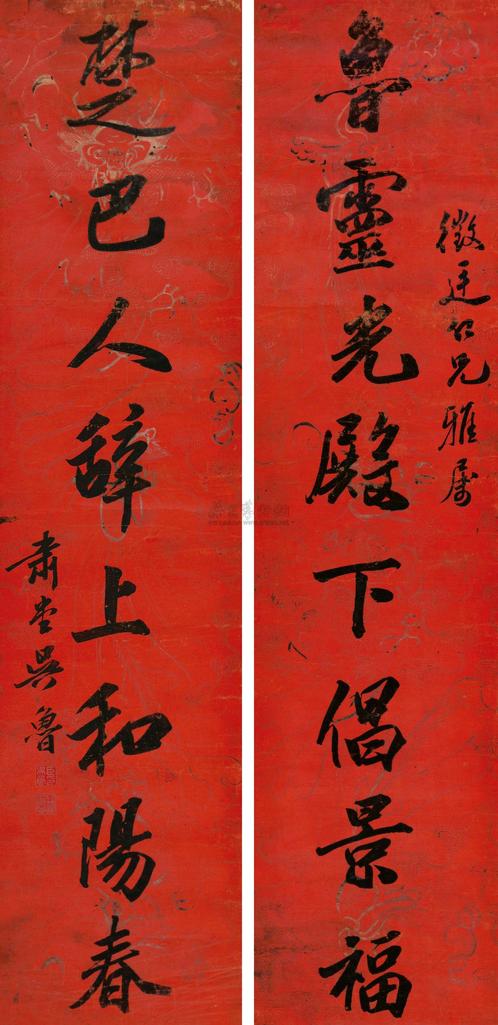 魯靈光殿下倡景福
徵廷仁兄雅属
楚巴人辞上和陽春
肅堂吳魯